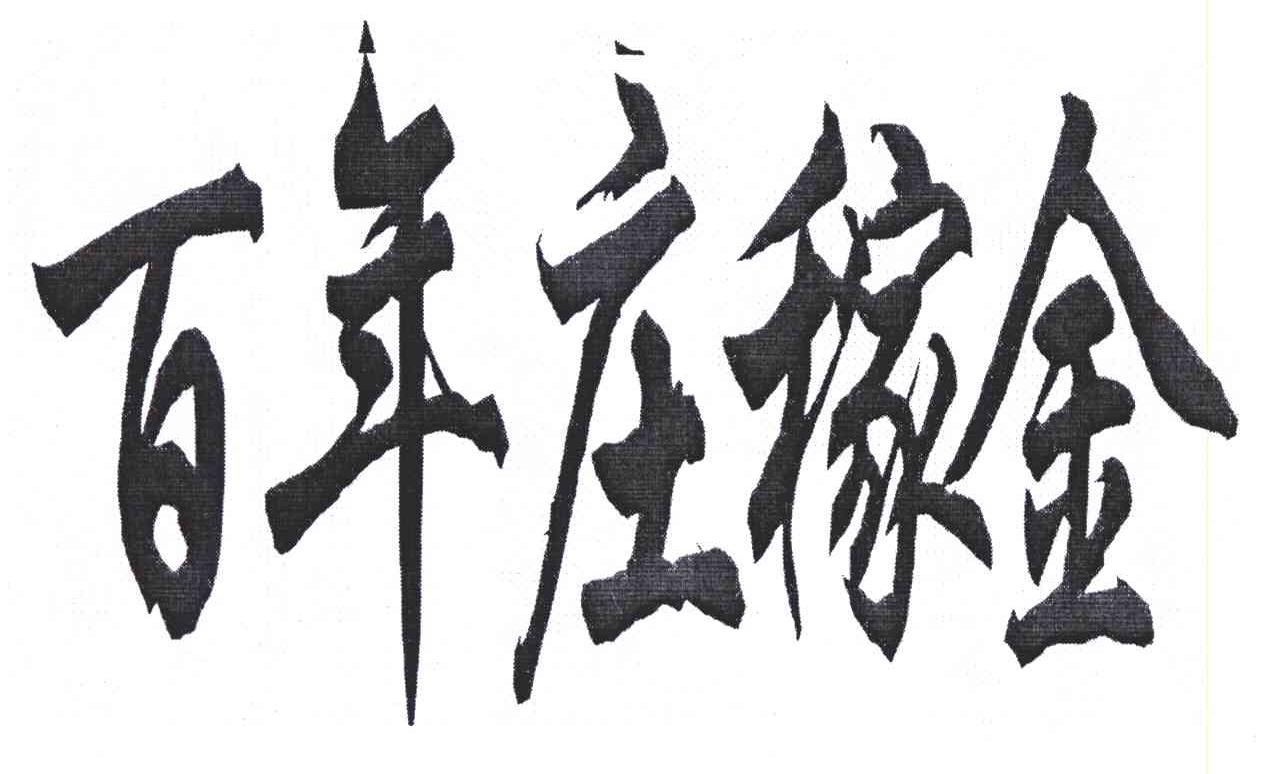 百年庄稼金